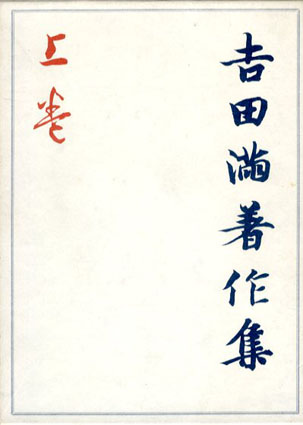 吉田満著作集
上巻